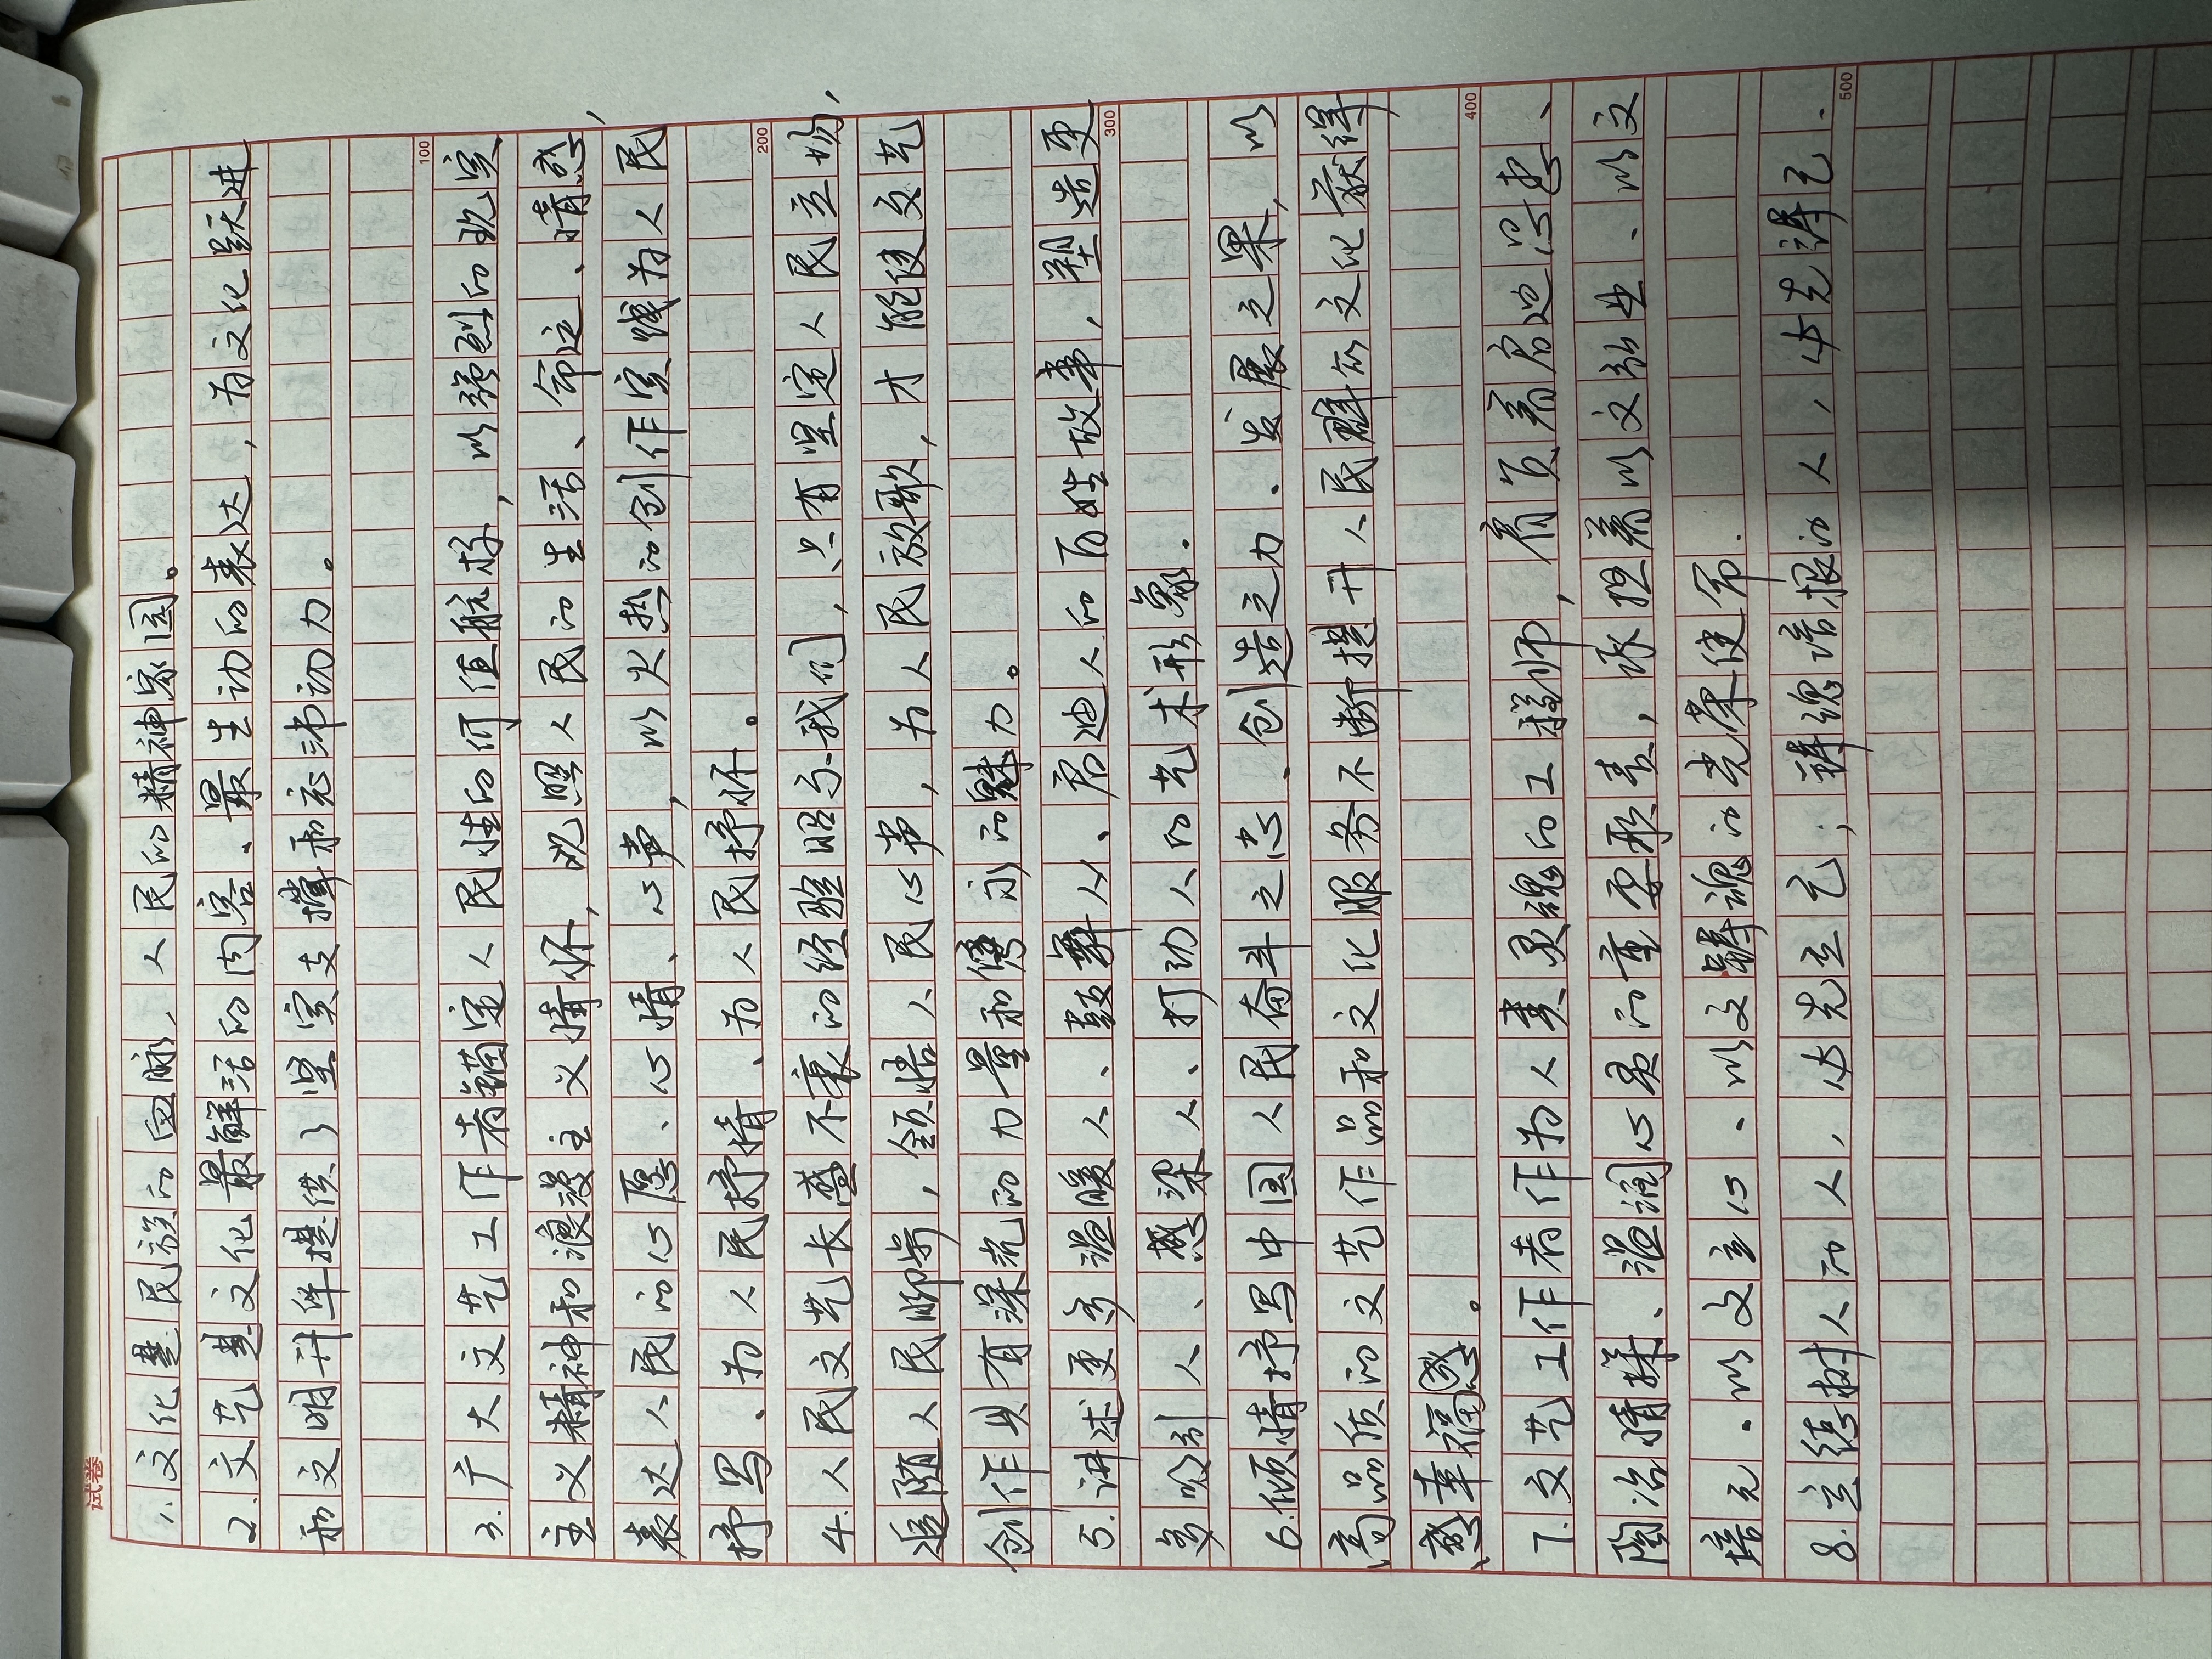 试卷
1.文化是民族的血脉，人民的精神家园。
2.文艺是文化最鲜活的内容、最生动的表达，为文化跃进
和文明升华提供了坚实支撑和充沛动力。
100
3.广大文艺工作者锚定人民性的价值航标，以强烈的现实
主义精神和浪漫主义情怀，观照人民的生活、命运、情感，
表达人民的心愿、心情、心声，以火热的创作实践为人民
抒写、为人民抒情、为人民抒怀。
200
4.人民文艺长盛不衰的经验昭示我们，只有坚定人民立场，
追随人民脚步，领悟人民心声，为人民放歌，才能使文艺
创作具有深沉的力量和隽永的魅力。
5.讲述更多温暖人、鼓舞人、启迪人的百姓故事，塑造更
300
多吸引人、感染人、打动人的艺术形象.
6.倾情抒写中国人民奋斗之志、创造之力、发展之果，以
高品质的文艺作品和文化服务不断提升人民群众文化获得
感幸福感。
400
7.文艺工作者作为人类灵魂的工程师，肩负着启迪思想、
陶冶情操、温润心灵的重要职责，承担着以文弘业、以文
培元、以文立心、以文铸魂的光荣使命.
8.立德树人的人，必先立己；铸魂培根的人，必先铸己.
500